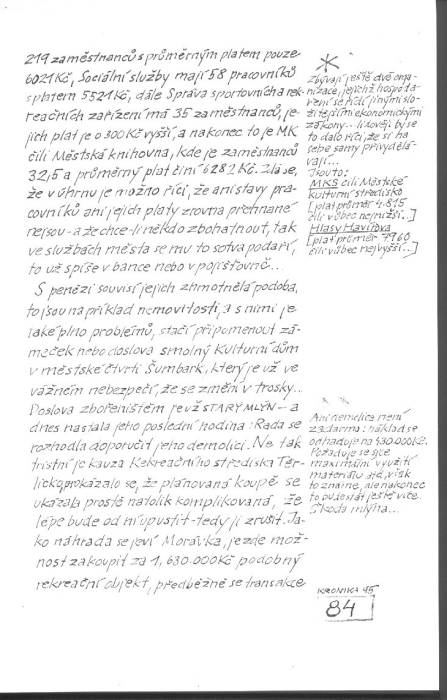 219 zaměstnanců s průměrným platem pouze
6021 Kč, Sociální služby mají 58 pracovníků
s platem 5521 Kč, dále Správa sportovních a rek-
reačních zařízení má 35 zaměstnanců, je-
jich plat je o 300 Kč vyšší, a nakonec to je MK
čili Městská knihovna, kde je zaměstnanců
32,5 a průměrný plat činí 6282 Kč. Zdá se,
že v úhrnu je možno říci, že ani stavy pra-
covníků ani jejich platy zrovna přehnané
nejsou - a že chce-li někdo zbohatnout, tak
ve službách města se mu to sotva podaří,
to už spíše v bance nebo v pojišťovně...
S penězi souvisí jejich zhmotnělá podoba,
to jsou například nemovitosti, a s nimi je
také plno problémů, stačí připomenout zá-
meček nebo doslova smolný Kulturní dům
v městské čtvrti Šumbark, který je už ve
vážném nebezpečí, že se změní v trosky...
Doslova zbořeništěm je už STARÝ MLÝN - a
dnes nastala jeho poslední hodina: Rada se
rozhodla doporučit jeho demolici. Ne tak
tristní je kauza Rekreačního střediska Těr-
licko: prokázalo se, že plánovaná koupě se
ukázala prostě natolik komplikovaná, že
lépe bude od ní upustit - tedy ji zrušit. Ja-
ko náhrada se jeví Morávka, je zde mož-
nost zakoupit za 1,630.000 Kč podobný
rekreační objekt, předběžně se transakce
Zbývají ještě dvě orga-
nizace, jejichž hospoda-
ření se řídí jinými slo-
žitějšími ekonomickými
zákony... lidověji by se
to dalo říci, že si na
sebe samy přivydělá-
vají...
Jsou to:
MKS čili Městské
kulturní středisko
[plat průměr 4.815
čili vůbec nejnižší..]
Hlasy Havířova
[plat průměr 7960
čili vůbec nejvyšší..]
Ani demolice není
zadarmo: náklad se
odhaduje na 430.000 Kč.
Požaduje se sice
maximální využití
materiálu atd, však
to známe, ale nakonec
to bude stát ještě více.
Škoda mlýna...
KRONIKA 95
84